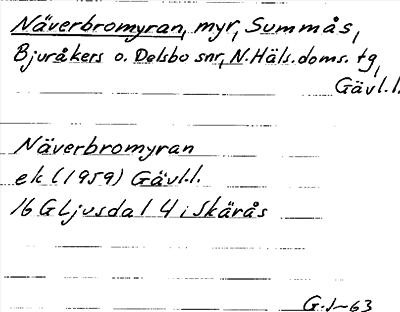 Näverbromyran, myr, Summås,
Bjuråkers o. Delsbo snr, N. Häls. doms. tg,
Gävl.l.
Näverbromyran
ek (1959) Gävl.l.
16 G Ljusdal 4 i Skärås
G.J-63